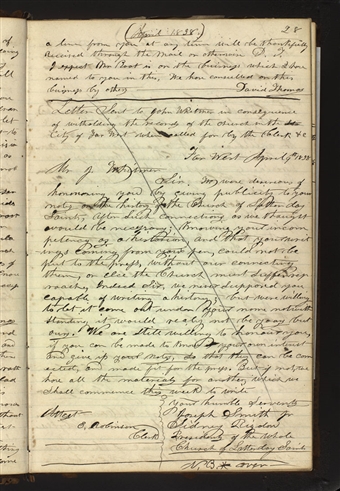 (April 1838.) 28
a line from you at any time will be thankfully
received through the mail or otherwise D. T.
I expect Bro Root is on the Buisness which I have
named to you in this, We have counselled on this
buisness by others David Thomas
Letter Sent to John Whitmer in consequence
of witholding the records of the Church in the
City of Far West when called for by the Clerk &c
Far West April 9th 1838
Mr. J. Whitmer
Sir, We were desirous of
honouring you by giving publicity to your
notes on the history of the Church of Latter day
Saints, after such corrections as we thought
would be necessary; knowing your incom
petency as a historian, and that your writ
ings coming from your pen, could not be
put to the press, without our correcting
them, or else the Church must suffer re
proach; Indeed Sir, we never supposed you
capable of writing a history; but were willing
to let it come out under your name notwith
standing it would really not be yours but
ours. We are still willing to honour you,
if you can be made to know your own interest
and give up your notes, so that they can be cor
rected, and made fit for the press. But if not, we
have all the materials for another, which we
shall commence this week to write
Your humble Servants
Attest Joseph Smith Jr
E. Robinson Sidney Rigdon
Clerk Presidents of the Whole
Church of Latterday Saints
N. B. over